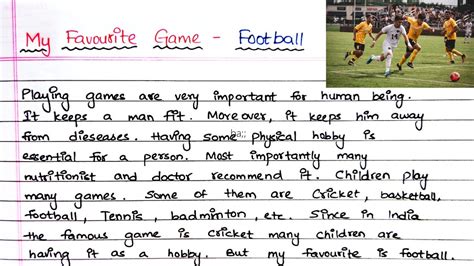 My Favourite Game - Football
Playing games are very important for human being.
It keeps a man fit. Moreover, it keeps him away
from dieseases. Having some physical hobby is
essential for a person. Most importantly many
nutritionist and doctor recommend it. Children play
many games. Some of them are Cricket, basketball,
football, Tennis, badminton, etc. Since in India
the famous game is cricket many children are
having it as a hobby. But my favourite is football.